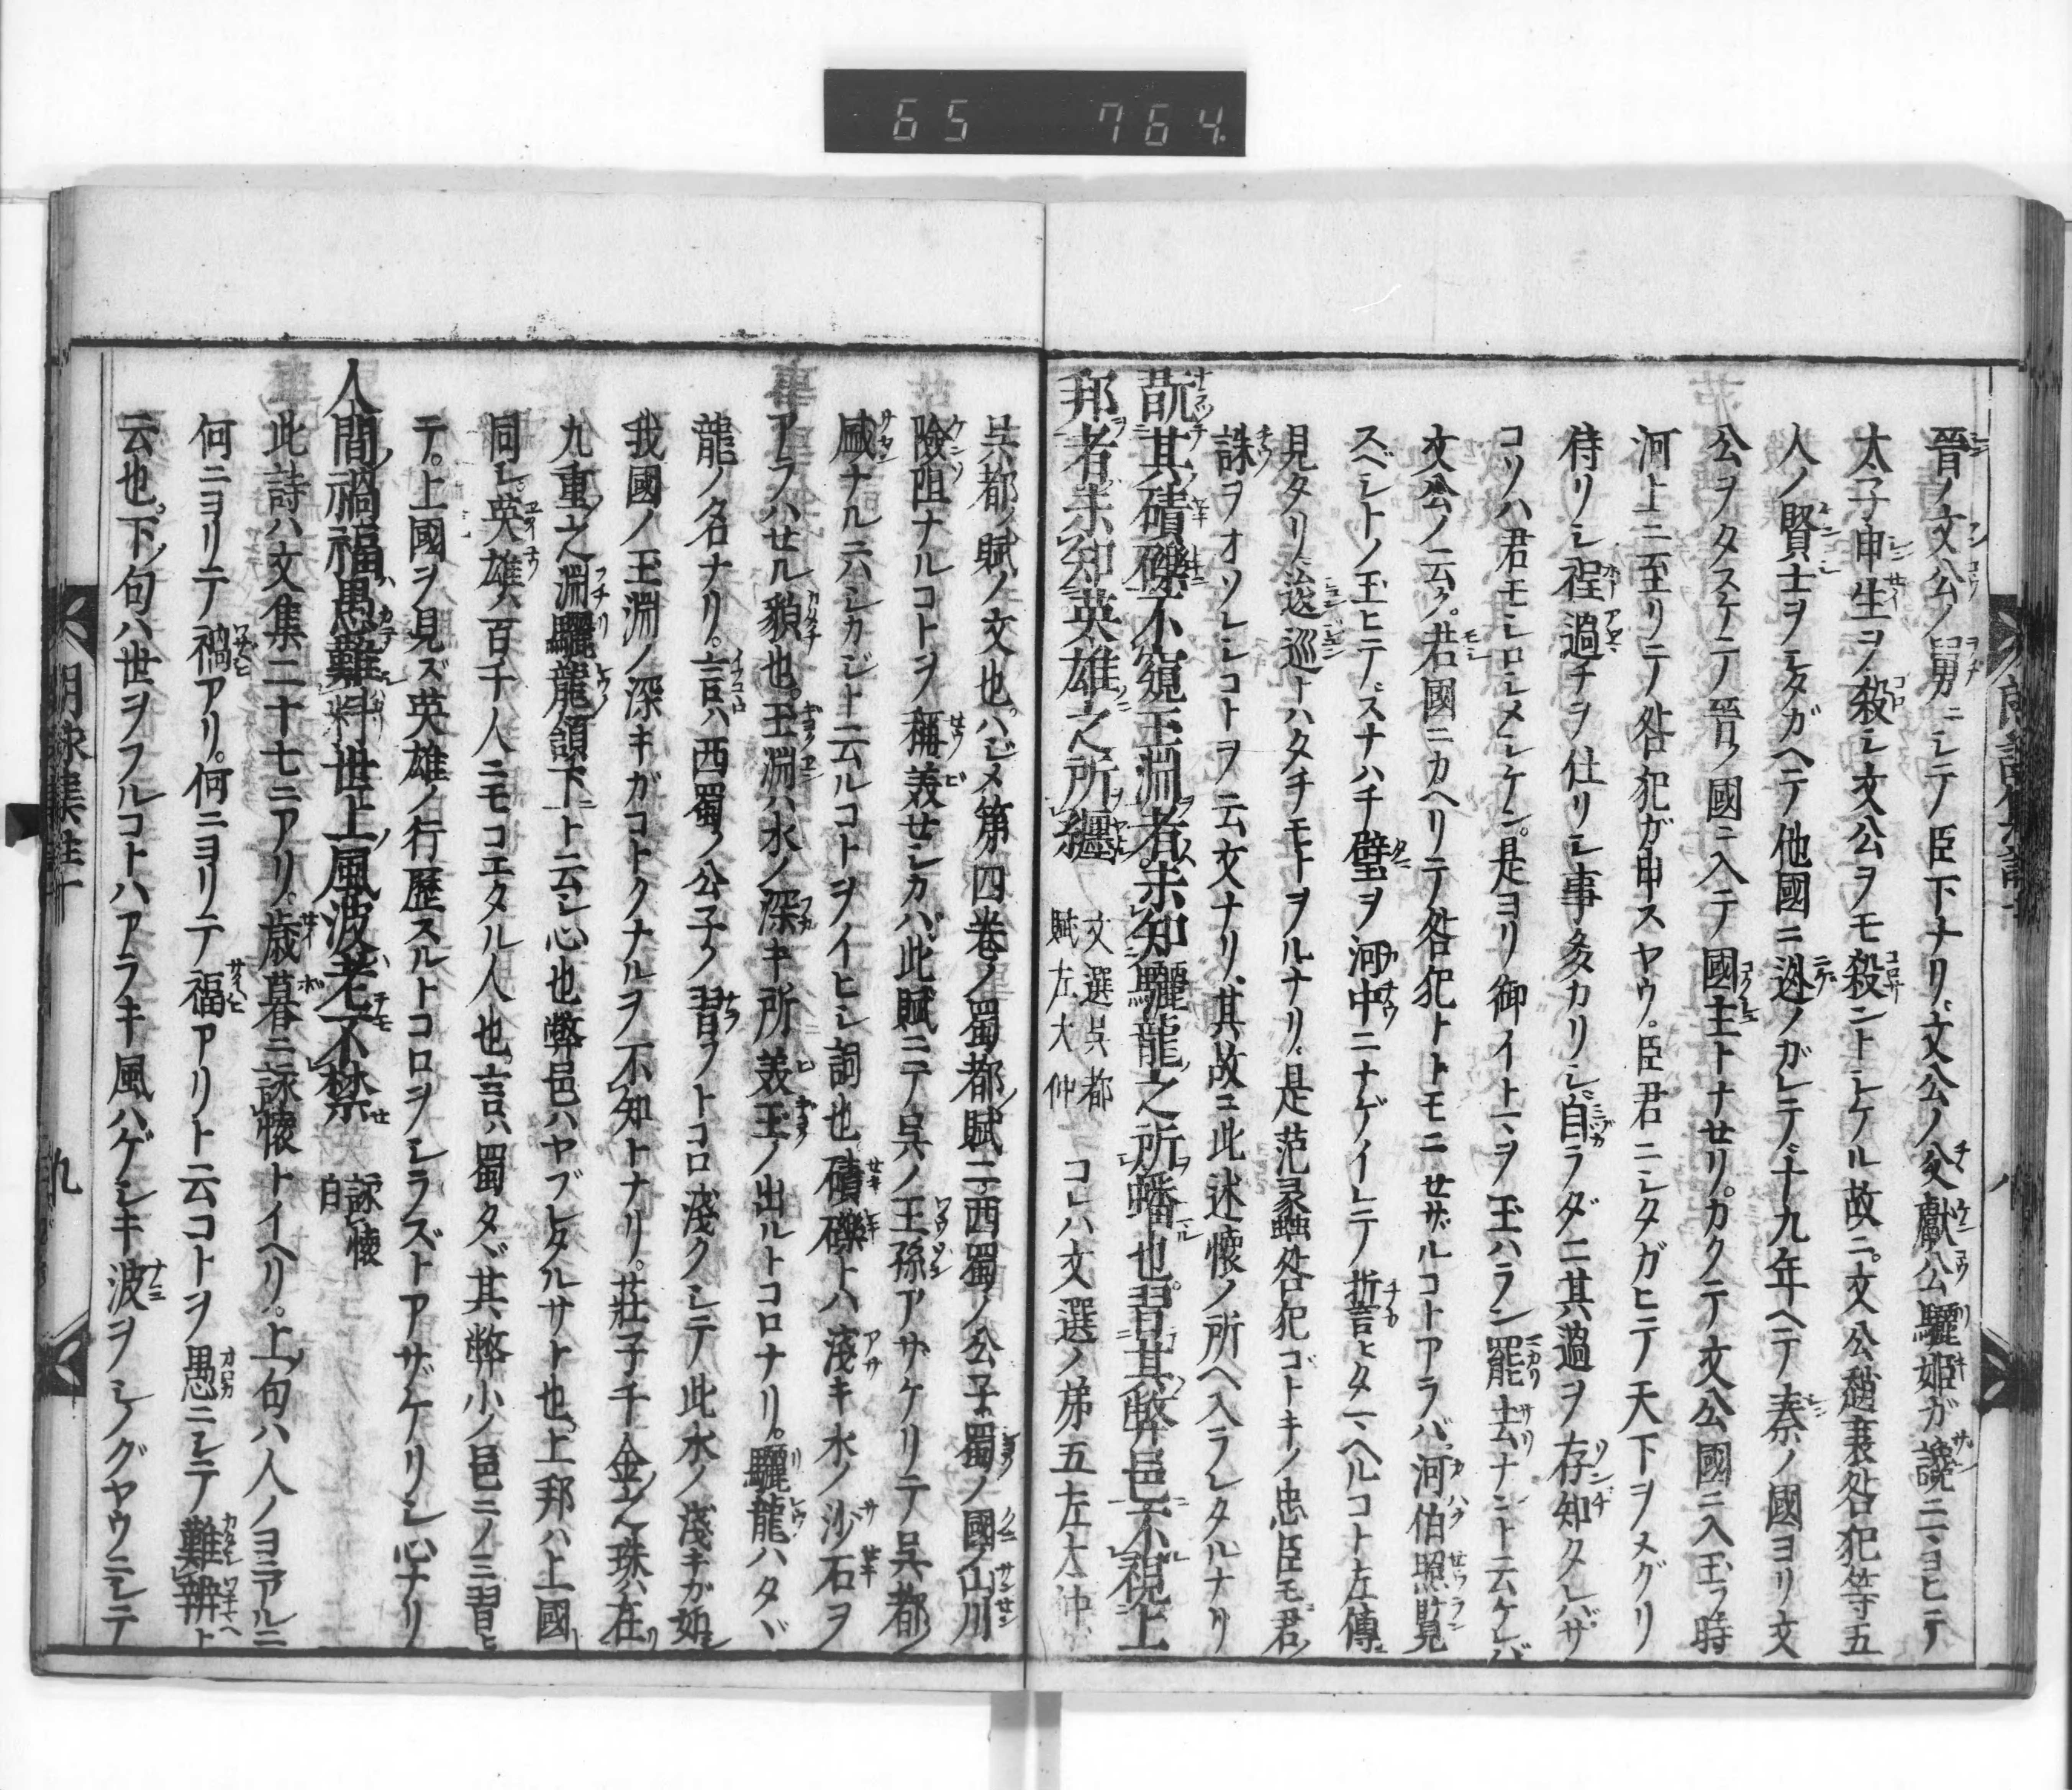 65 764
晋ノ文公ノ舅ニシテノ臣下ナリ文公ノ父獻公驪姫ガ讒ニヨヒテ
太子申生ヲ殺シ文公ヲモ殺ントシケル故ニ文公趙衰咎犯等五
人ノ賢士ヲシタガヘテ他國ニ逃ノガレテ十九年ヘテ秦ノ國ヨリ文
公ヲタスケテノ晉ノ國ニ入テ國主トナセリカクテ文公國ニ入玉フ時
河上ニ至リテノ咎犯ガ申スヤウ臣君ニシタガヒテ天下ヲメグリ
侍リシ程過チヲ仕リシ事多カリシ自ラダニ其過ヲ存知タレバサ
コソハ君モシロシメシケン是ヨリ御イトマヲ玉ハラン罷去ナント云ケレバ
文公ノ云ク若國ニカヘリテ咎犯トトモニセザルコトアラバ河伯照覧
スベシトノ玉ヒテスナハチ璧ヲ河中ニナゲイレテノ誓ヒタマヘルコト左傳ニ
見タリ逡巡トハタチモトヲルナリ是范蠡咎犯ゴトキノ忠臣モ君ノ
誅ヲオソレシコトヲ云文ナリ其故ニ此述懐ノ所ヘ入ラレタルナリ
翫其磧礫不窺玉淵者未知驪龍之所蟠也習其弊邑不視上
邦者未知英雄之所纒 文選呉都賦左大仲 コレハ文選ノ第五左太冲
呉都ノ賦ノ文也ハジメ第四巻ノ蜀都ノ賦ニ西蜀ノ公子蜀ノ國ノ山川
險阻ナルコトヲ稱美センカバ此賦ニテ呉ノ王孫アザケリテ呉都ノ
盛ナルニハシカジト云ルコトヲイヒシ詞也磧礫トハ淺キ水ノ沙石ヲ
アラハせル貌也玉淵ハ水ノ深キ所美玉ノ出ルトコロナリ驪龍ハタヾ
龍ノ名ナリ言ハ西蜀ノ公子ノ習フトコロ淺クシテ此水ノ淺キガ如シ
我國ノ玉淵ノ深キガコトクナルヲ不知トナリ莊子千金之珠ハ在リ
九重之淵驪龍頷下ト云シ心也弊邑ハヤブレタルサト也上邦ハ上國ニ
同レ英雄ハ百千人ニモコエタル人也言ハ蜀タヾ其弊小ノ邑ニノミ習ヒ
テ上國ヲ見ズ英雄ノ行歴スルトコロヲシラズトアザケリシ心ナリ
人間禍福愚難料世上風波老不禁 詠懐 白
此詩ハ文集二十七ニアリ歳暮ニ詠懐トイヘリ上ノ句ハ人ノヨニアルニ
何ニヨリテ禍アリ何ニヨリテ福アリト云コトヲ愚ニシテ難辨ト
云也下ノ句ハ世ヲフルコトハアラキ風ハゲシキ波ヲシノグヤウニシテ
朗詠集註 九